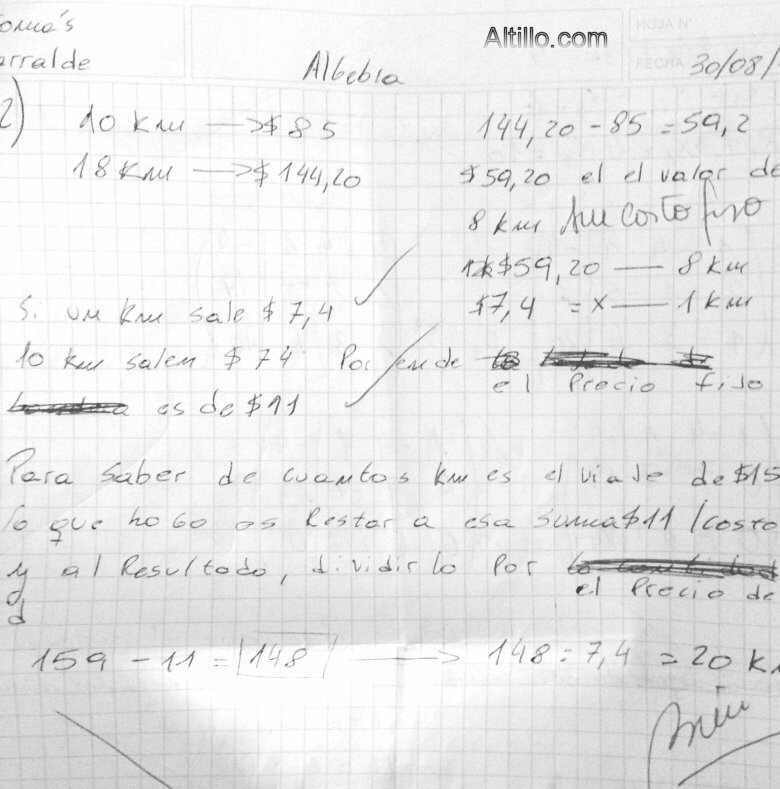 Altillo.com
HOJA Nº
FECHA 30/08/
Tomás
arralde
Albebra
2)
10 km → $ 85
18 km → $ 144,20
144,20 - 85 = 59,2
$59,20 el el valor de
8 km sin costo fijo
$59,20 — 8 km
$7,4 = x — 1 km
S. un km sale $ 7,4
10 km salen $ 74 Por ende
el Precio fijo
es de $11
Para saber de cuantos km es el viaje de $15
lo que hago es Restar a esa suma $11 (costo
y al Resultado, dividirlo Por
el Precio de
159 - 11 = 148 → 148 : 7,4 = 20 km